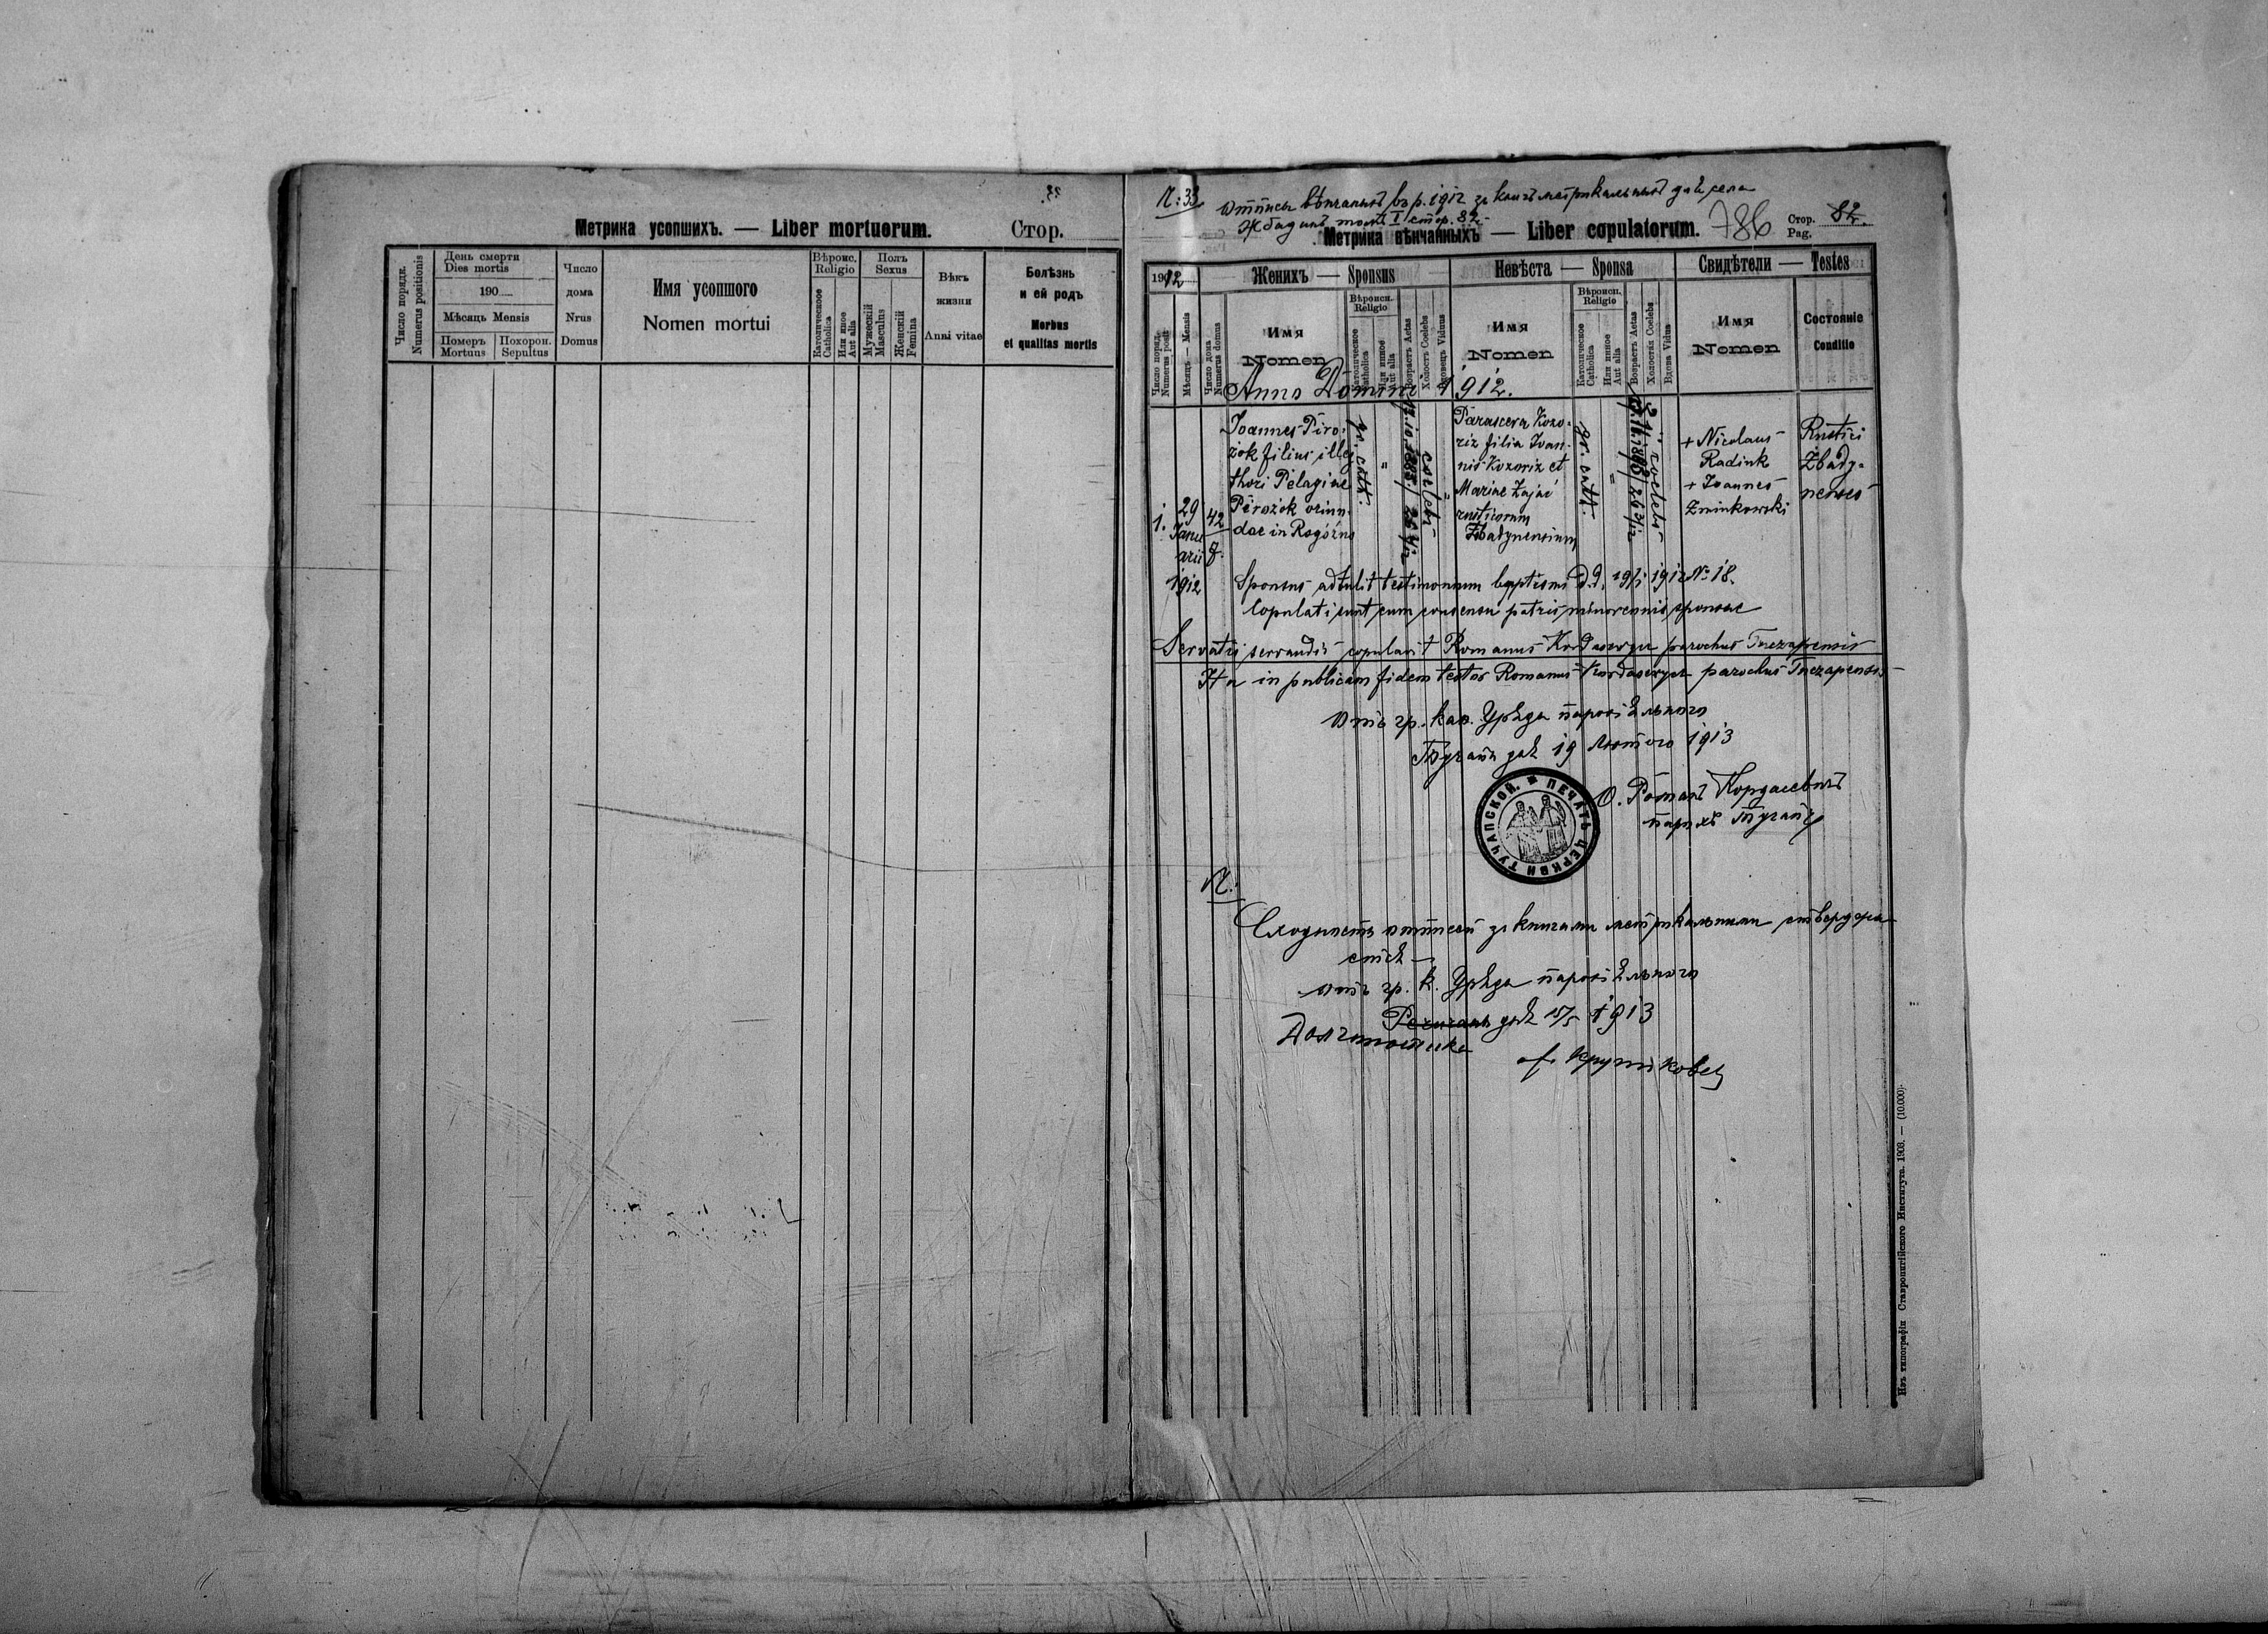 Метрика усопшихъ. — Liber mortuorum. Стор.
Число порядк. Numerus positionis
День смерти Dies mortis
190
Мѣсяцъ Mensis
Померъ Mortuus
Похорон. Sepultus
Число дома Nrus Domus
Имя усопшого Nomen mortui
Вѣроис. Religio
Католическоое Catholica
Или иное Aut alia
Полъ Sexus
Мужескій Masculus
Женскій Femina
Вѣкъ жизни Anni vitae
Болѣзнь и ей родъ Morbus et qualitas mortis
N: 33
Отпись вѣнчаныхъ въ р. 1912 зъ книгъ метрикальныхъ для села
Жбадынь томъ I стор. 82.
Метрика вѣнчанныхъ — Liber copulatorum. 786 Стор. Pag. 82.
1912
Женихъ — Sponsus
Невѣста — Sponsa
Свидѣтели — Testes
Число поряд. Numerus posit.
Мѣсяць — Mensis
Число дома Numerus domus
Имя Nomen
Вѣроисп. Religio
Католическое Catholica
Или инное Aut alia
Возрастъ Aetas
Холостъ Coelebs
Вдовецъ Viduus
Имя Nomen
Вѣроисп. Religio
Католическое Catholica
Или инное Aut alia
Возрастъ Aetas
Холостая Coelebs
Вдова Vidua
Имя Nomen
Состояніе Conditio
Anno Domini 1912.
1.
29 Januarii 1912
42
8.
Joannes Piro-
żok filius illeg.
thori Pelagiae
Pirożok oriun-
dae in Rogóźno
gr. cath.
"
coelebs
Parascera Kozo-
riz filia Ioan-
nis Kozoriz et
Mariae Zajać
rusticorum
Żbadynensium
gr. cath.
=
coelebs
+ Nicolaus
Radink
+ Joannes
Zminkowski
Rustici
Żbady-
nenses
Sponsus adtulit testimonium baptismi d.d. 19/1 1912 N: 18.
Copulati sunt cum consensu patris minorennis sponsae
Servatis servandis copulavit Romanus Kordasewycz parochus Tuczapensis
Ita in publicam fidem testor Romanus Kordasewycz parochus Tuczapensis
Отъ гр. кат. Урѧда парохіѧльного
Тучапы днѧ 19 Лютого 1913
О. Романъ Кордасевичъ
парохъ Тучапъ
ПЕЧАТЬ ЦЕРКВИ ТУЧАПСКОЙ.
N:
Сходность отписей зъ книгами метрикальными стверджа-
єтсѧ —
отъ гр. к. Урѧда парохіѧльного
днѧ 15/5 1913
Изъ типографіи Ставропигійского Института. 1908. — (10.000).